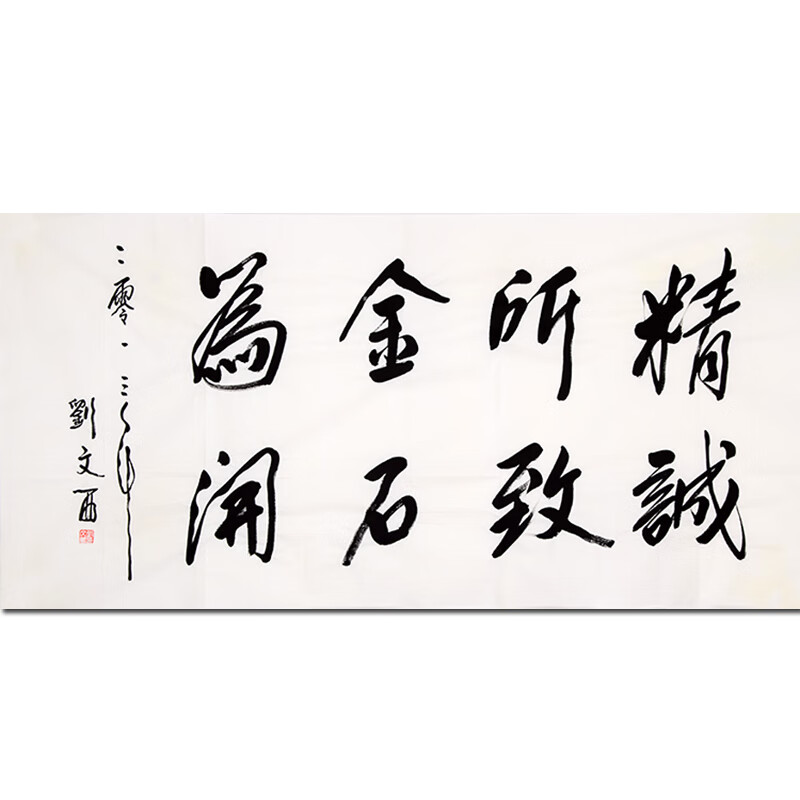 精誠
所致
金石
為開
二零一三年
劉文西